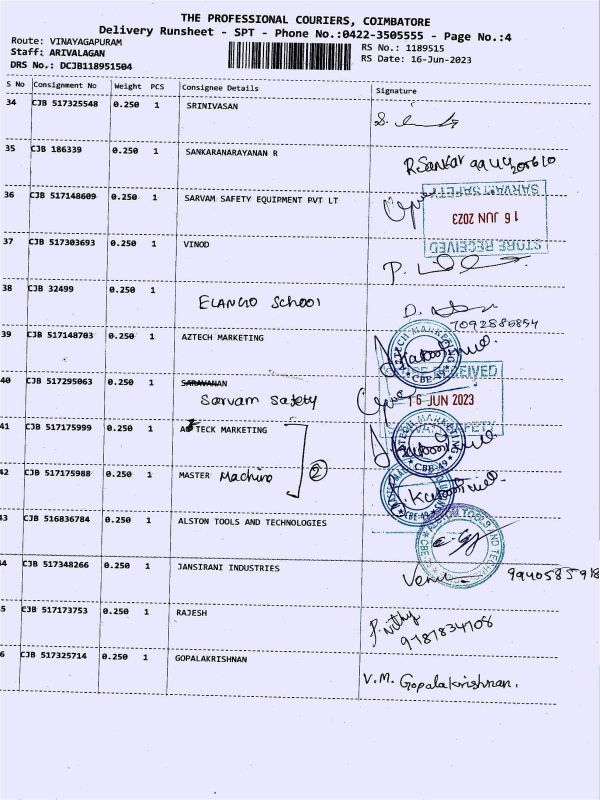 THE PROFESSIONAL COURIERS, COIMBATORE
Delivery Runsheet - SPT - Phone No.:0422-3505555 - Page No.:4
Route: VINAYAGAPURAM
RS No.: 1189515
Staff: ARIVALAGAN
RS Date: 16-Jun-2023
DRS No.: DCJB118951504
S No Consignment No Weight PCS Consignee Details Signature
34 CJB 517325548 0.250 1 SRINIVASAN
35 CJB 186339 0.250 1 SANKARANARAYANAN R
R.Sankar
36 CJB 517148609 0.250 1 SARVAM SAFETY EQUIPMENT PVT LT
SARVAM SAFETY
16 JUN 2023
STORE RECEIVED
37 CJB 517303693 0.250 1 VINOD
38 CJB 32499 0.250 1
ELANGO SCHOOL
7092885854
39 CJB 517148703 0.250 1 AZTECH MARKETING
AZTECH MARKETING
CBE-49
40 CJB 517295063 0.250 1 SARAVANAN
Sarvam Safety
RECEIVED
16 JUN 2023
SAFETY
41 CJB 517175999 0.250 1 TECK MARKETING
TECH MARKETING
CBE-49
2
42 CJB 517175988 0.250 1 MASTER Machino
CBE-49
43 CJB 516836784 0.250 1 ALSTON TOOLS AND TECHNOLOGIES
ALSTON TOOLS AND TECH
CBE
44 CJB 517348266 0.250 1 JANSIRANI INDUSTRIES
9940585918
5 CJB 517173753 0.250 1 RAJESH
9787834708
6 CJB 517325714 0.250 1 GOPALAKRISHNAN
V.M. Gopalakrishnan.